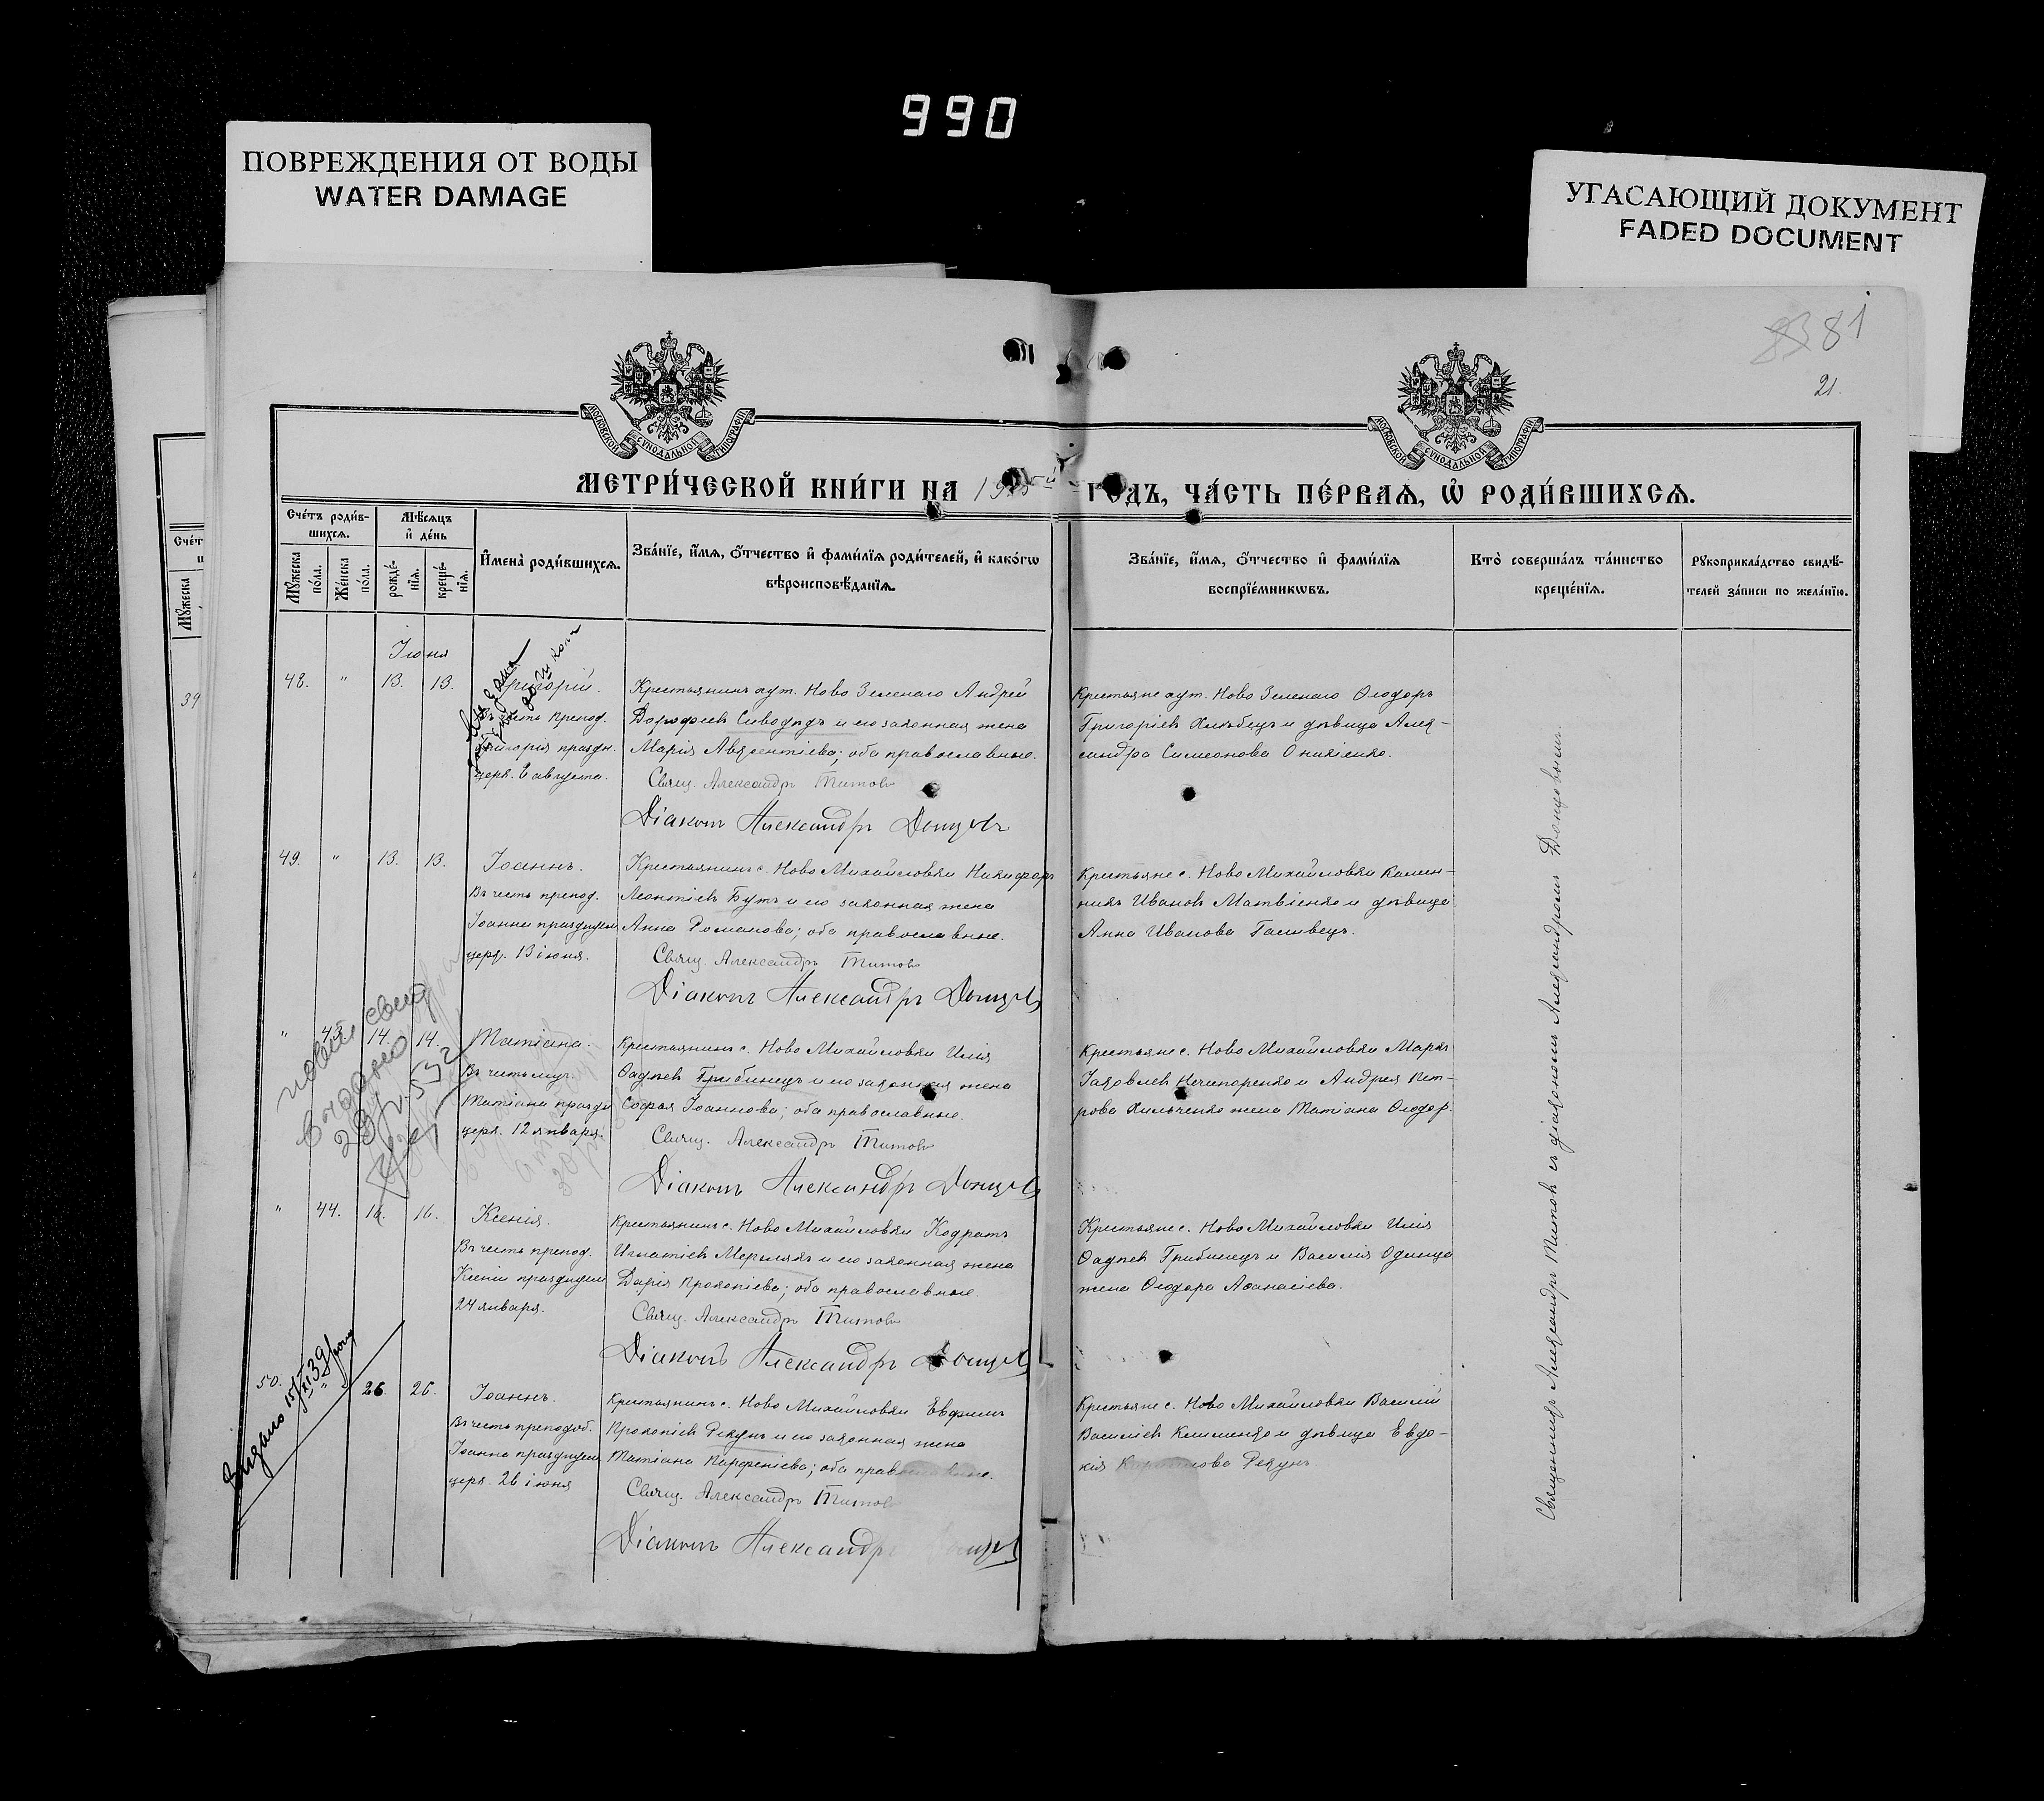 990
ПОВРЕЖДЕНИЯ ОТ ВОДЫ
WATER DAMAGE
УГАСАЮЩИЙ ДОКУМЕНТ
FADED DOCUMENT
83 81
21.
МОСКОВСКОЙ СУНОДАЛЬНОЙ ТИПОГРАФІИ
МОСКОВСКОЙ СУНОДАЛЬНОЙ ТИПОГРАФІИ
МЕТРИ́ЧЕСКОЙ КНИ́ГИ НА 19 ГО́ДЪ, ЧА́СТЬ ПЕ́РВАѦ, Ѡ҆ РОДИ́ВШИХСѦ.
Сче́тъ роди́в-
шихсѧ.
Мꙋ́жеска по́ла.
Же́нска по́ла.
Мѣ́сѧцъ
и҆ де́нь
рожде́-
нїѧ.
креще́-
нїѧ.
И҆мена̀ роди́вшихсѧ.
Зва́нїе, и҆́мѧ, ѻ҆́тчество и҆ фами́лїѧ роди́телей, и҆ како́гѡ
вѣроисповѣ́данїѧ.
Зва́нїе, и҆́мѧ, ѻ҆́тчество и҆ фами́лїѧ
воспрїе́мникѡвъ.
Кто̀ соверша́лъ та́инство
креще́нїѧ.
Рꙋкоприкла́дство свидѣ́-
телей за́писи по жела́нїю.
Сче́т
Мꙋ́жеска
39
Іюня
48. " 13. 13. Григорій.
Въ честь препод.
Григорія праздн.
церк. 8 августа.
Крестьянинъ хут. Ново Зеленаго Андрей
Дорофіевъ Сиводидъ и его законная жена
Марія Авксентіева; оба православные.
Свящ. Александръ Титовъ
Діаконъ Александръ Донцовъ
Крестьяне хут. Ново Зеленаго Ѳеодоръ
Григоріевъ Хлѣбецъ и дѣвица Алек-
сандра Симеонова Оникіенко.
49. " 13. 13. Іоаннъ.
Въ честь препод.
Іоанна празднуем.
церк. 13 іюня.
Крестьянинъ с. Ново Михайловки Никифоръ
Леонтіевъ Бутъ и его законная жена
Анна Романова; оба православные.
Свящ. Александръ Титовъ
Діаконъ Александръ Донцовъ
Крестьяне с. Ново Михайловки Калин-
никъ Ивановъ Матвіенко и дѣвица
Анна Иванова Галивецъ.
" 43. 14. 14. Татіана.
Въ честь муч.
Татіаны праздн.
церк. 12 января.
Крестьянинъ с. Ново Михайловки Илія
Ѳадѣевъ Грибинецъ и его законная жена
Софья Іоаннова; оба православные.
Свящ. Александръ Титовъ
Діаконъ Александръ Донцовъ
Крестьяне с. Ново Михайловки Маркъ
Іаковлевъ Нечипоренко и Андрея Пет-
рова Хильченко жена Татіана Ѳеодор.
" 44. 16. 16. Ксенія.
Въ честь препод.
Ксеніи празднуем
24 января.
Крестьянинъ с. Ново Михайловки Кодратъ
Игнатіевъ Мерзлякъ и его законная жена
Дарія Прокопіева; оба православные.
Свящ. Александръ Титовъ
Діаконъ Александръ Донцовъ
Крестьяне с. Ново Михайловки Илія
Ѳадѣевъ Грибинецъ и Василія Одинца
жена Ѳеодора Аѳанасіева.
50. " 26. 26. Іоаннъ.
Въ честь преподоб.
Іоанна празднуем
церк. 26 іюня
Крестьянинъ с. Ново Михайловки Евфимъ
Прокопіевъ Рекунъ и его законная жена
Татіана Парфеніева; оба православные.
Свящ. Александръ Титовъ
Діаконъ Александръ Донцовъ
Крестьяне с. Ново Михайловки Василій
Василіевъ Клименко и дѣвица Евдо-
кія Рекунъ
Священникъ Александръ Титовъ съ діакономъ Александромъ Донцовымъ.
Выдано 15/XI 39